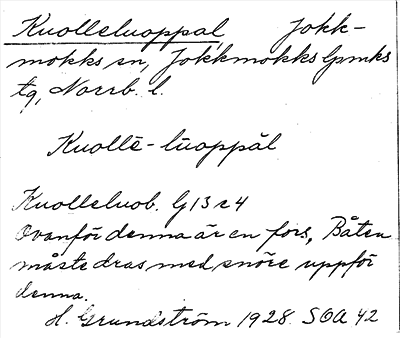 Kuolleluoppal, Jokk-
mokks sn, Jokkmokks lpmks
tg, Norrb. l.
Kuollē-lūoppāl
Kuolleluob. G 13 r 4
Ovanför denna är en fors, Båten
måste dras med snöre uppför
denna.
H. Grundström 1928. SOA 42